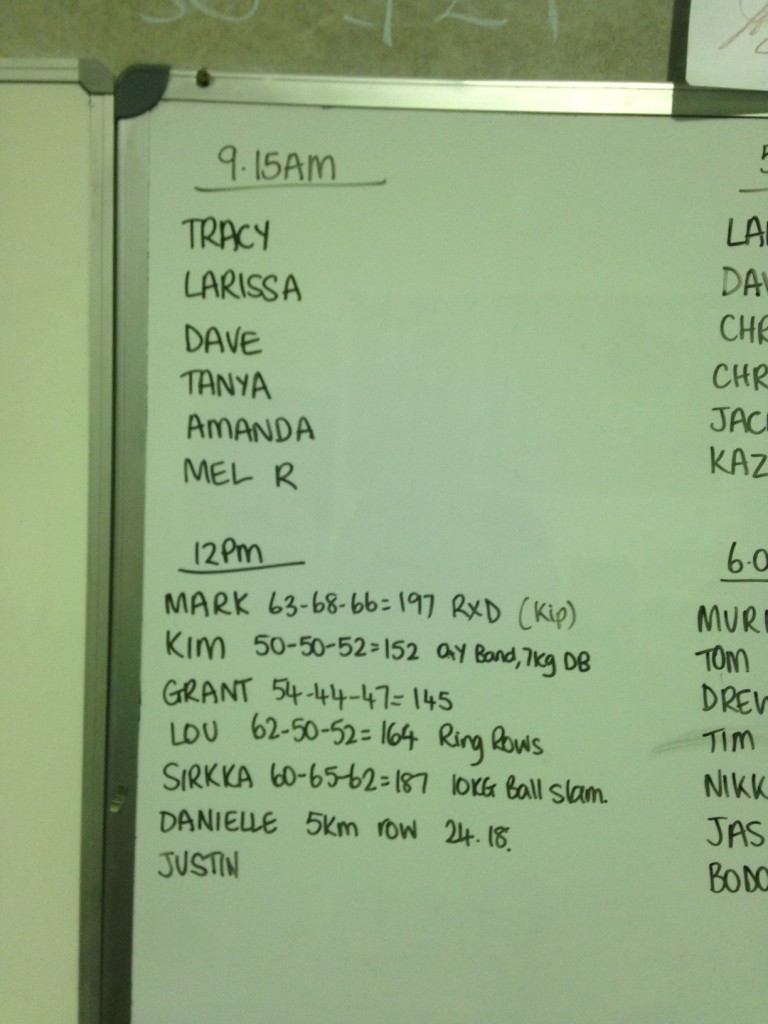 9.15AM
TRACY
LARISSA
DAVE
TANYA
AMANDA
MEL R
12Pm
MARK 63-68-66=197 RXD (Kip)
KIM 50-50-52=152 Band, 7kg DB
GRANT 54-44-47=145
LOU 62-50-52=164 Ring Rows
SIRKKA 60-65-62=187 10KG Ball slam.
DANIELLE 5Km row 24.18.
JUSTIN
5
LA
DAV
CHR
CHR
JAC
KAZ
6.0
MUR
TOM
DREW
TIM
NIKK
JAS
BODO